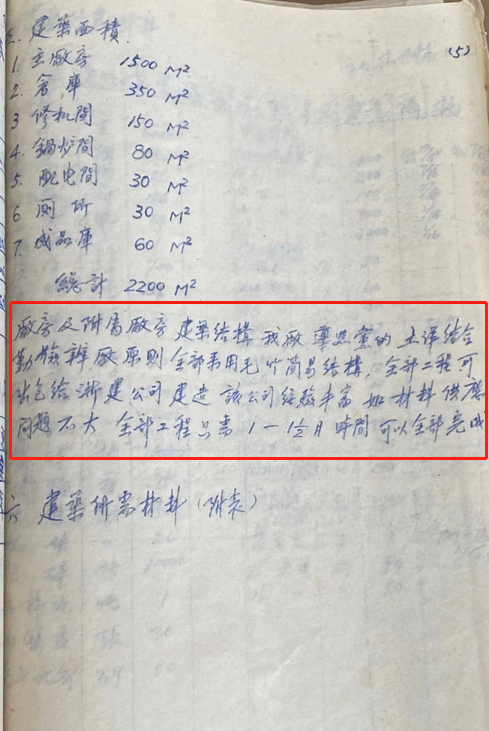 五. 建築面積.
(5)
1. 主廠房 1500 M²
2. 倉庫 350 M²
3 修机間 150 M²
4. 鍋炉間 80 M²
5. 配电間 30 M²
6 厠所 30 M²
7. 成品庫 60 M²
總計 2200 M²
廠房及附屬廠房建築結構 我廠 党的土洋結合
勤儉辦廠原則 全部采用毛竹简易結構, 全部工程可
出包给浙建公司建造 該公司经驗丰富 如材料供应
问题不大 全部工程只需 1一1½月時間可以全部完成
六 建築所需材料（附表）